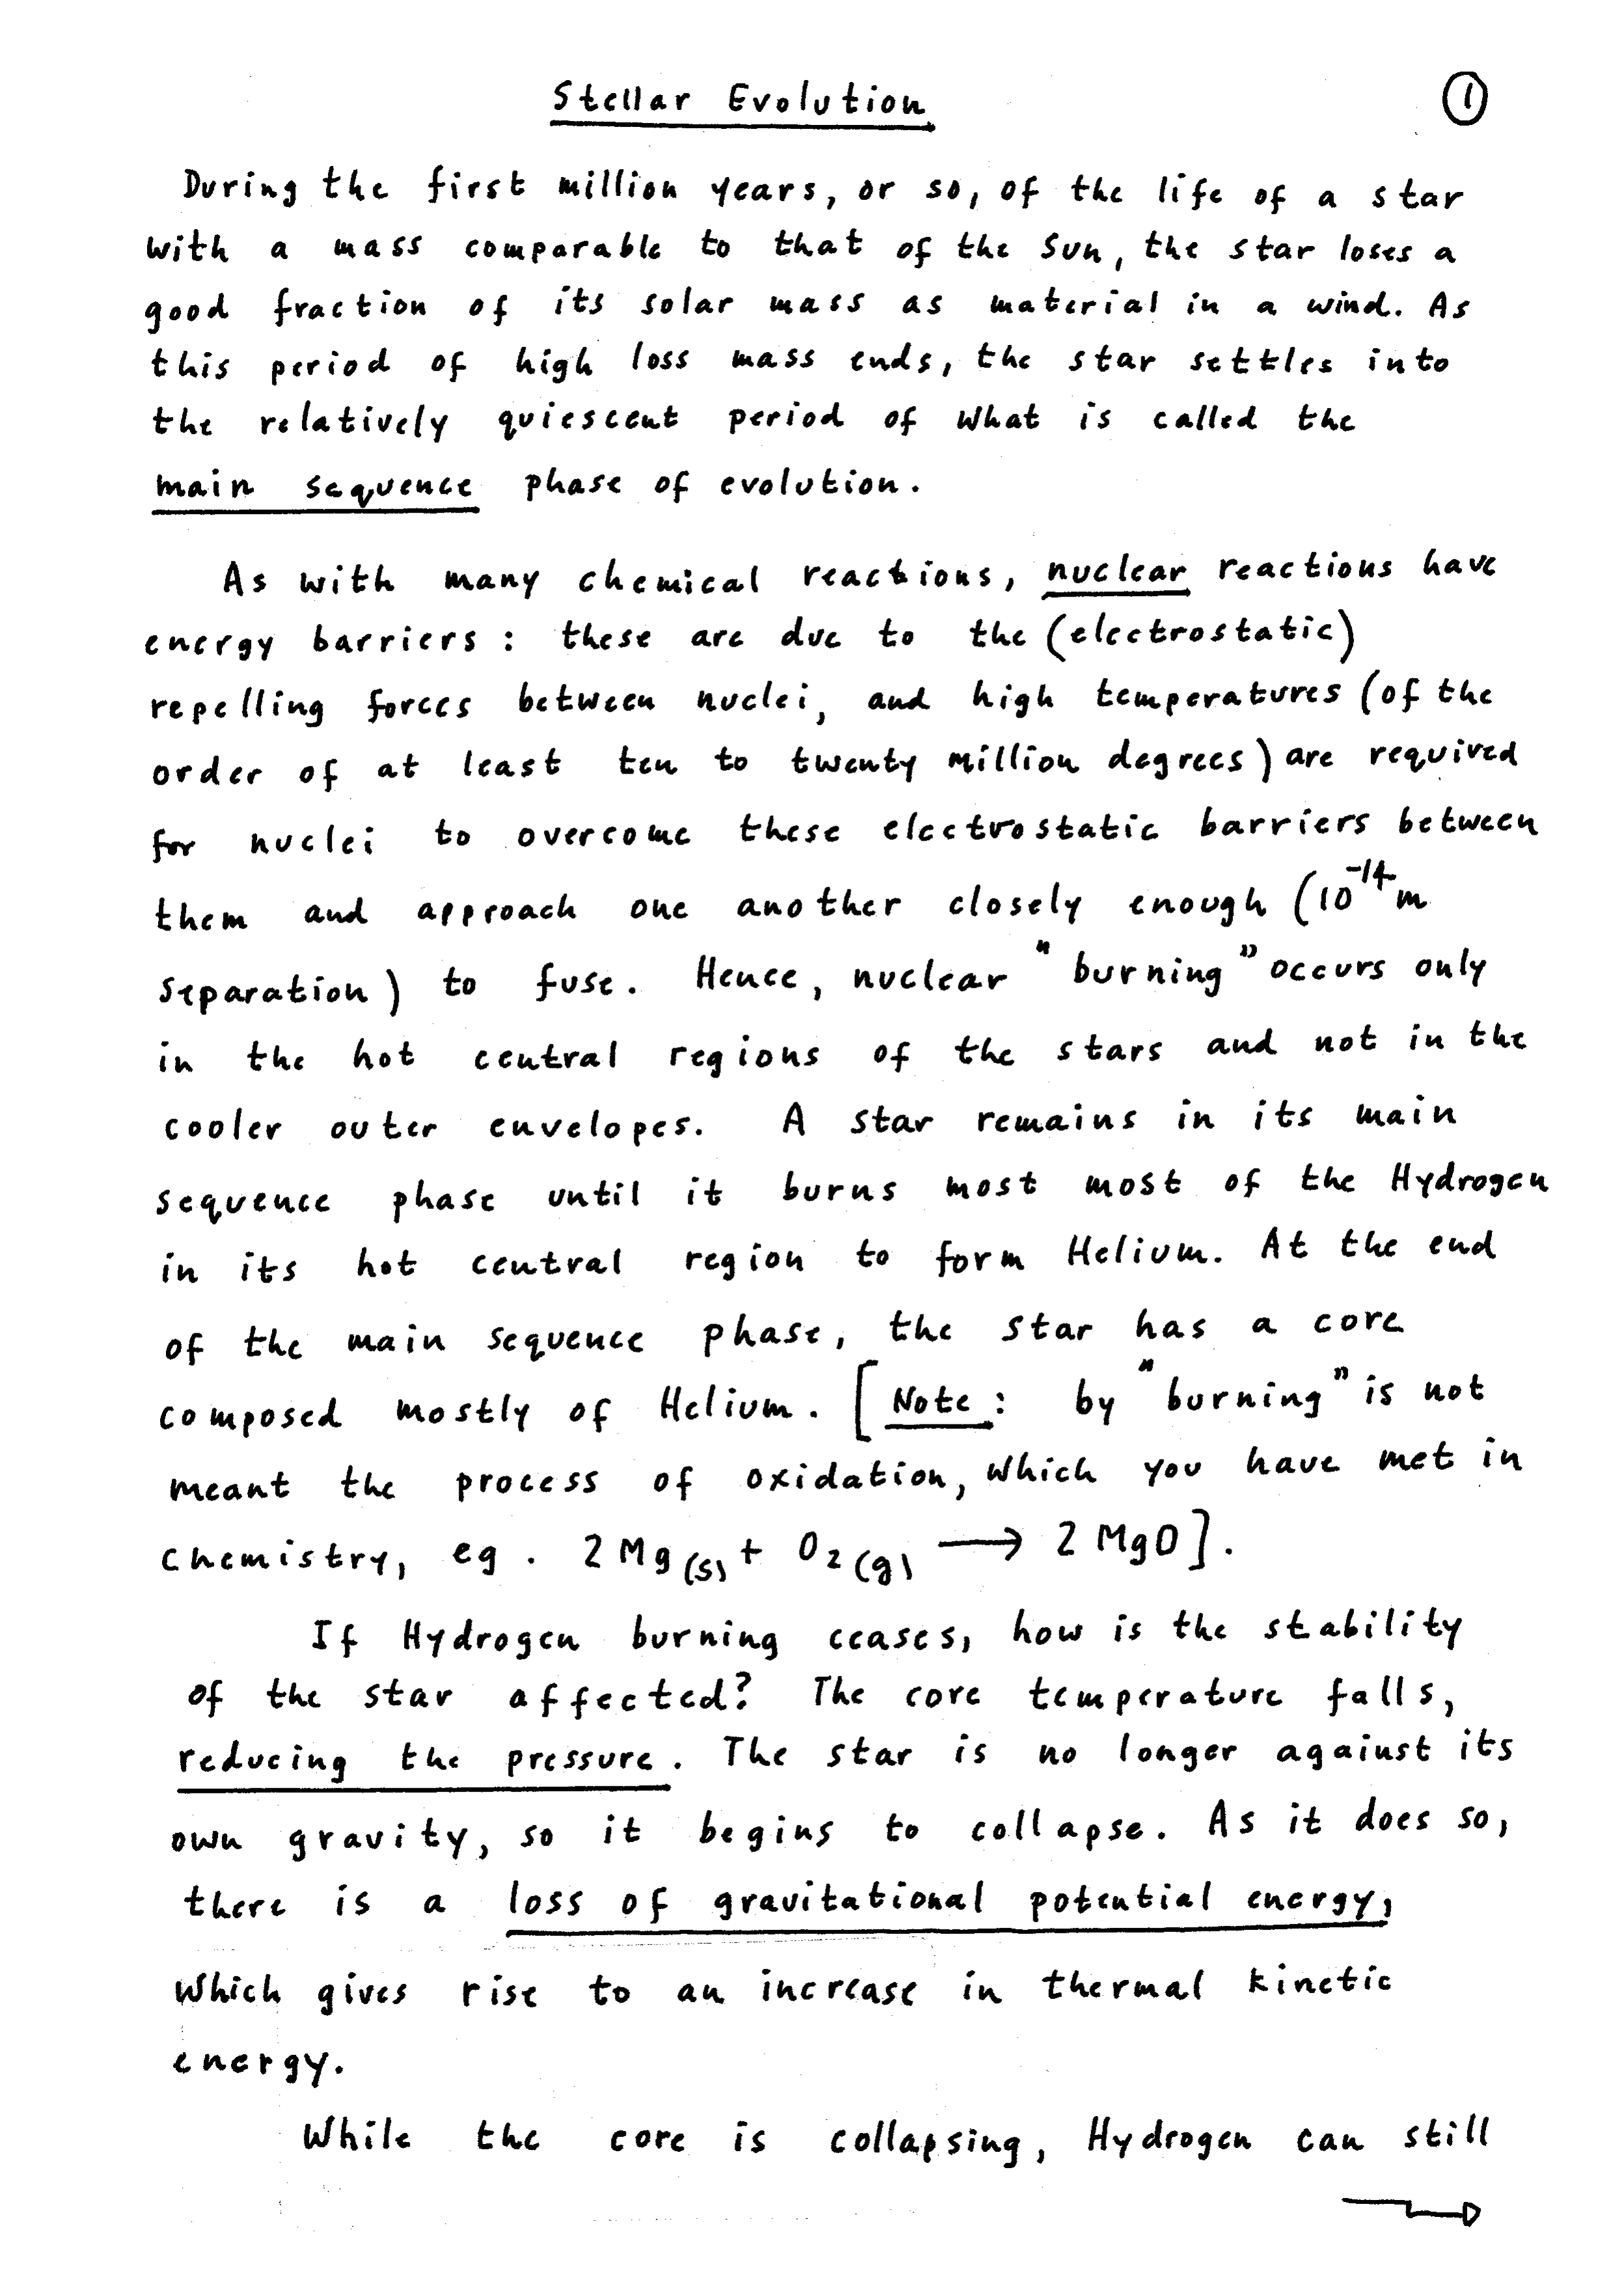 Stellar Evolution
①
During the first million years, or so, of the life of a star
with a mass comparable to that of the Sun, the star loses a
good fraction of its solar mass as material in a wind. As
this period of high loss mass ends, the star settles into
the relatively quiescent period of what is called the
main sequence phase of evolution.
As with many chemical reactions, nuclear reactions have
energy barriers : these are due to the (electrostatic)
repelling forces between nuclei, and high temperatures (of the
order of at least ten to twenty million degrees) are required
for nuclei to overcome these electrostatic barriers between
them and approach one another closely enough (10⁻¹⁴ m
separation) to fuse. Hence, nuclear "burning" occurs only
in the hot central regions of the stars and not in the
cooler outer envelopes. A star remains in its main
sequence phase until it burns most most of the Hydrogen
in its hot central region to form Helium. At the end
of the main sequence phase, the star has a core
composed mostly of Helium. [Note : by "burning" is not
meant the process of oxidation, which you have met in
chemistry, eg. 2 Mg (s) + O₂ (g) ⟶ 2 MgO].
If Hydrogen burning ceases, how is the stability
of the star affected? The core temperature falls,
reducing the pressure. The star is no longer against its
own gravity, so it begins to collapse. As it does so,
there is a loss of gravitational potential energy,
which gives rise to an increase in thermal kinetic
energy.
While the core is collapsing, Hydrogen can still